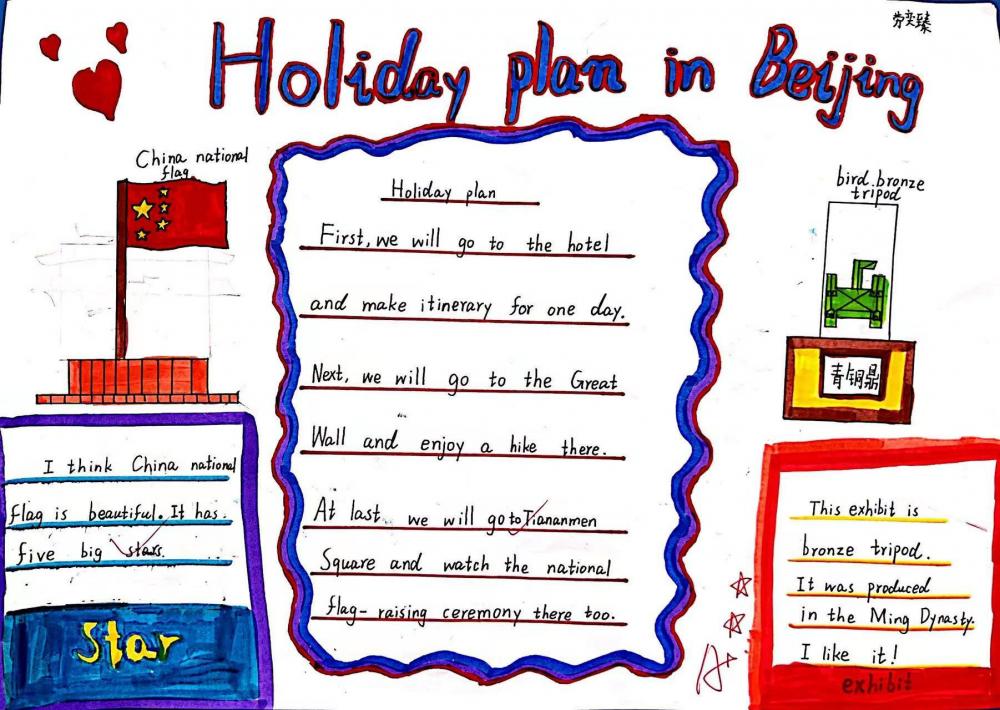 劳奕臻
Holiday plan in Beijing
China national
flag
Holiday plan
First, we will go to the hotel
and make itinerary for one day.
Next, we will go to the Great
Wall and enjoy a hike there.
At last we will go to Tiananmen
Square and watch the national
flag-raising ceremony there too.
I think China national
flag is beautiful. It has
five big stars.
Star
bird bronze
tripod
青铜鼎
This exhibit is
bronze tripod.
It was produced
in the Ming Dynasty.
I like it!
exhibit
A+